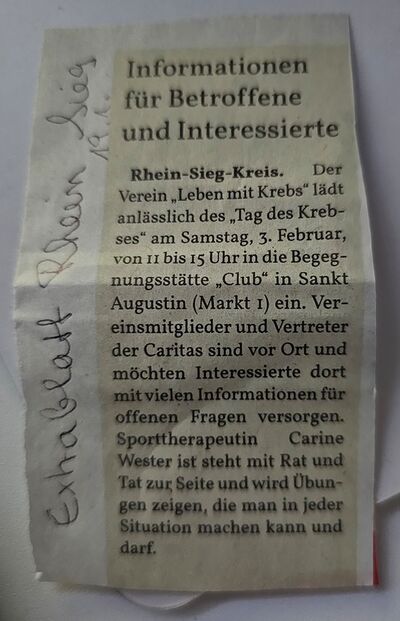 Extrablatt Rhein Sieg
19.1.
Informationen
für Betroffene
und Interessierte
Rhein-Sieg-Kreis. Der
Verein „Leben mit Krebs“ lädt
anlässlich des „Tag des Kreb-
ses“ am Samstag, 3. Februar,
von 11 bis 15 Uhr in die Begeg-
nungsstätte „Club“ in Sankt
Augustin (Markt 1) ein. Ver-
einsmitglieder und Vertreter
der Caritas sind vor Ort und
möchten Interessierte dort
mit vielen Informationen für
offenen Fragen versorgen.
Sporttherapeutin Carine
Wester ist steht mit Rat und
Tat zur Seite und wird Übun-
gen zeigen, die man in jeder
Situation machen kann und
darf.